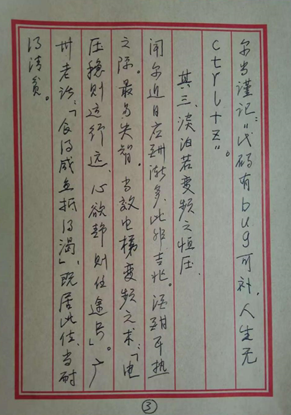 尔当谨记:"代码有bug可补,人生无
ctrl+z"。
其三、淡泊若变频之恒压
闻尔近日应酬渐多,此非吉兆。酒酣耳热
之际,最易失智,当效电梯变频之术:「电
压稳则运行远,心欲静则仕途易」。广
州老话:「食得咸鱼抵得渴」,既居此位,当耐
得清贫。
③